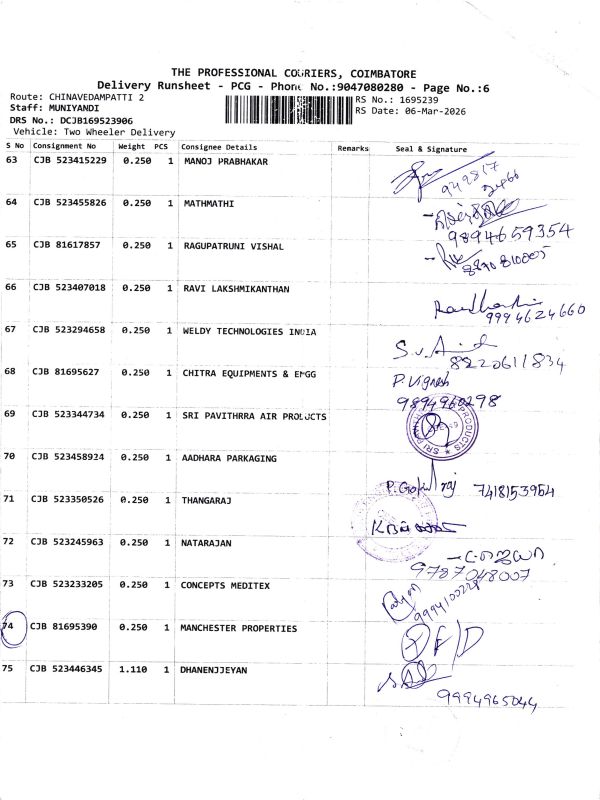 THE PROFESSIONAL COURIERS, COIMBATORE
Delivery Runsheet - PCG - Phone No.:9047080280 - Page No.:6
Route: CHINAVEDAMPATTI 2
Staff: MUNIYANDI
DRS No.: DCJB169523906
Vehicle: Two Wheeler Delivery
RS No.: 1695239
RS Date: 06-Mar-2026
S No Consignment No Weight PCS Consignee Details Remarks Seal & Signature
63 CJB 523415229 0.250 1 MANOJ PRABHAKAR
64 CJB 523455826 0.250 1 MATHMATHI
9894659354
65 CJB 81617857 0.250 1 RAGUPATRUNI VISHAL
66 CJB 523407018 0.250 1 RAVI LAKSHMIKANTHAN
9994624660
67 CJB 523294658 0.250 1 WELDY TECHNOLOGIES INDIA
8220611834
68 CJB 81695627 0.250 1 CHITRA EQUIPMENTS & ENGG P. Vignesh
9894960298
69 CJB 523344734 0.250 1 SRI PAVITHRRA AIR PRODUCTS
70 CJB 523458924 0.250 1 AADHARA PARKAGING
P. Gokul raj 7418153954
71 CJB 523350526 0.250 1 THANGARAJ
72 CJB 523245963 0.250 1 NATARAJAN
9787048007
73 CJB 523233205 0.250 1 CONCEPTS MEDITEX
9994100228
74 CJB 81695390 0.250 1 MANCHESTER PROPERTIES
75 CJB 523446345 1.110 1 DHANENJJEYAN
9994965044